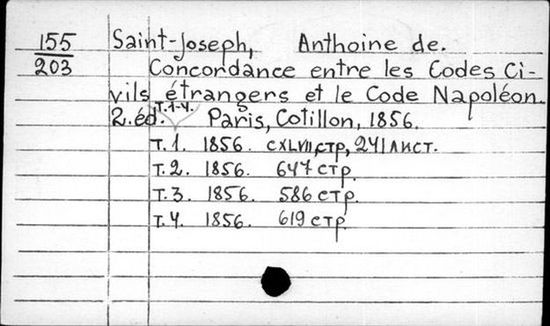 155 Saint-Joseph, Anthoine de.
203 Concordance entre les Codes Ci-
vils étrangers et le Code Napoléon.
2.éd. т.1-4. Paris, Cotillon, 1856.
т.1. 1856. CXLVII стр, 241 лист.
т.2. 1856. 647 стр.
т.3. 1856. 586 стр.
т.4. 1856. 619 стр.